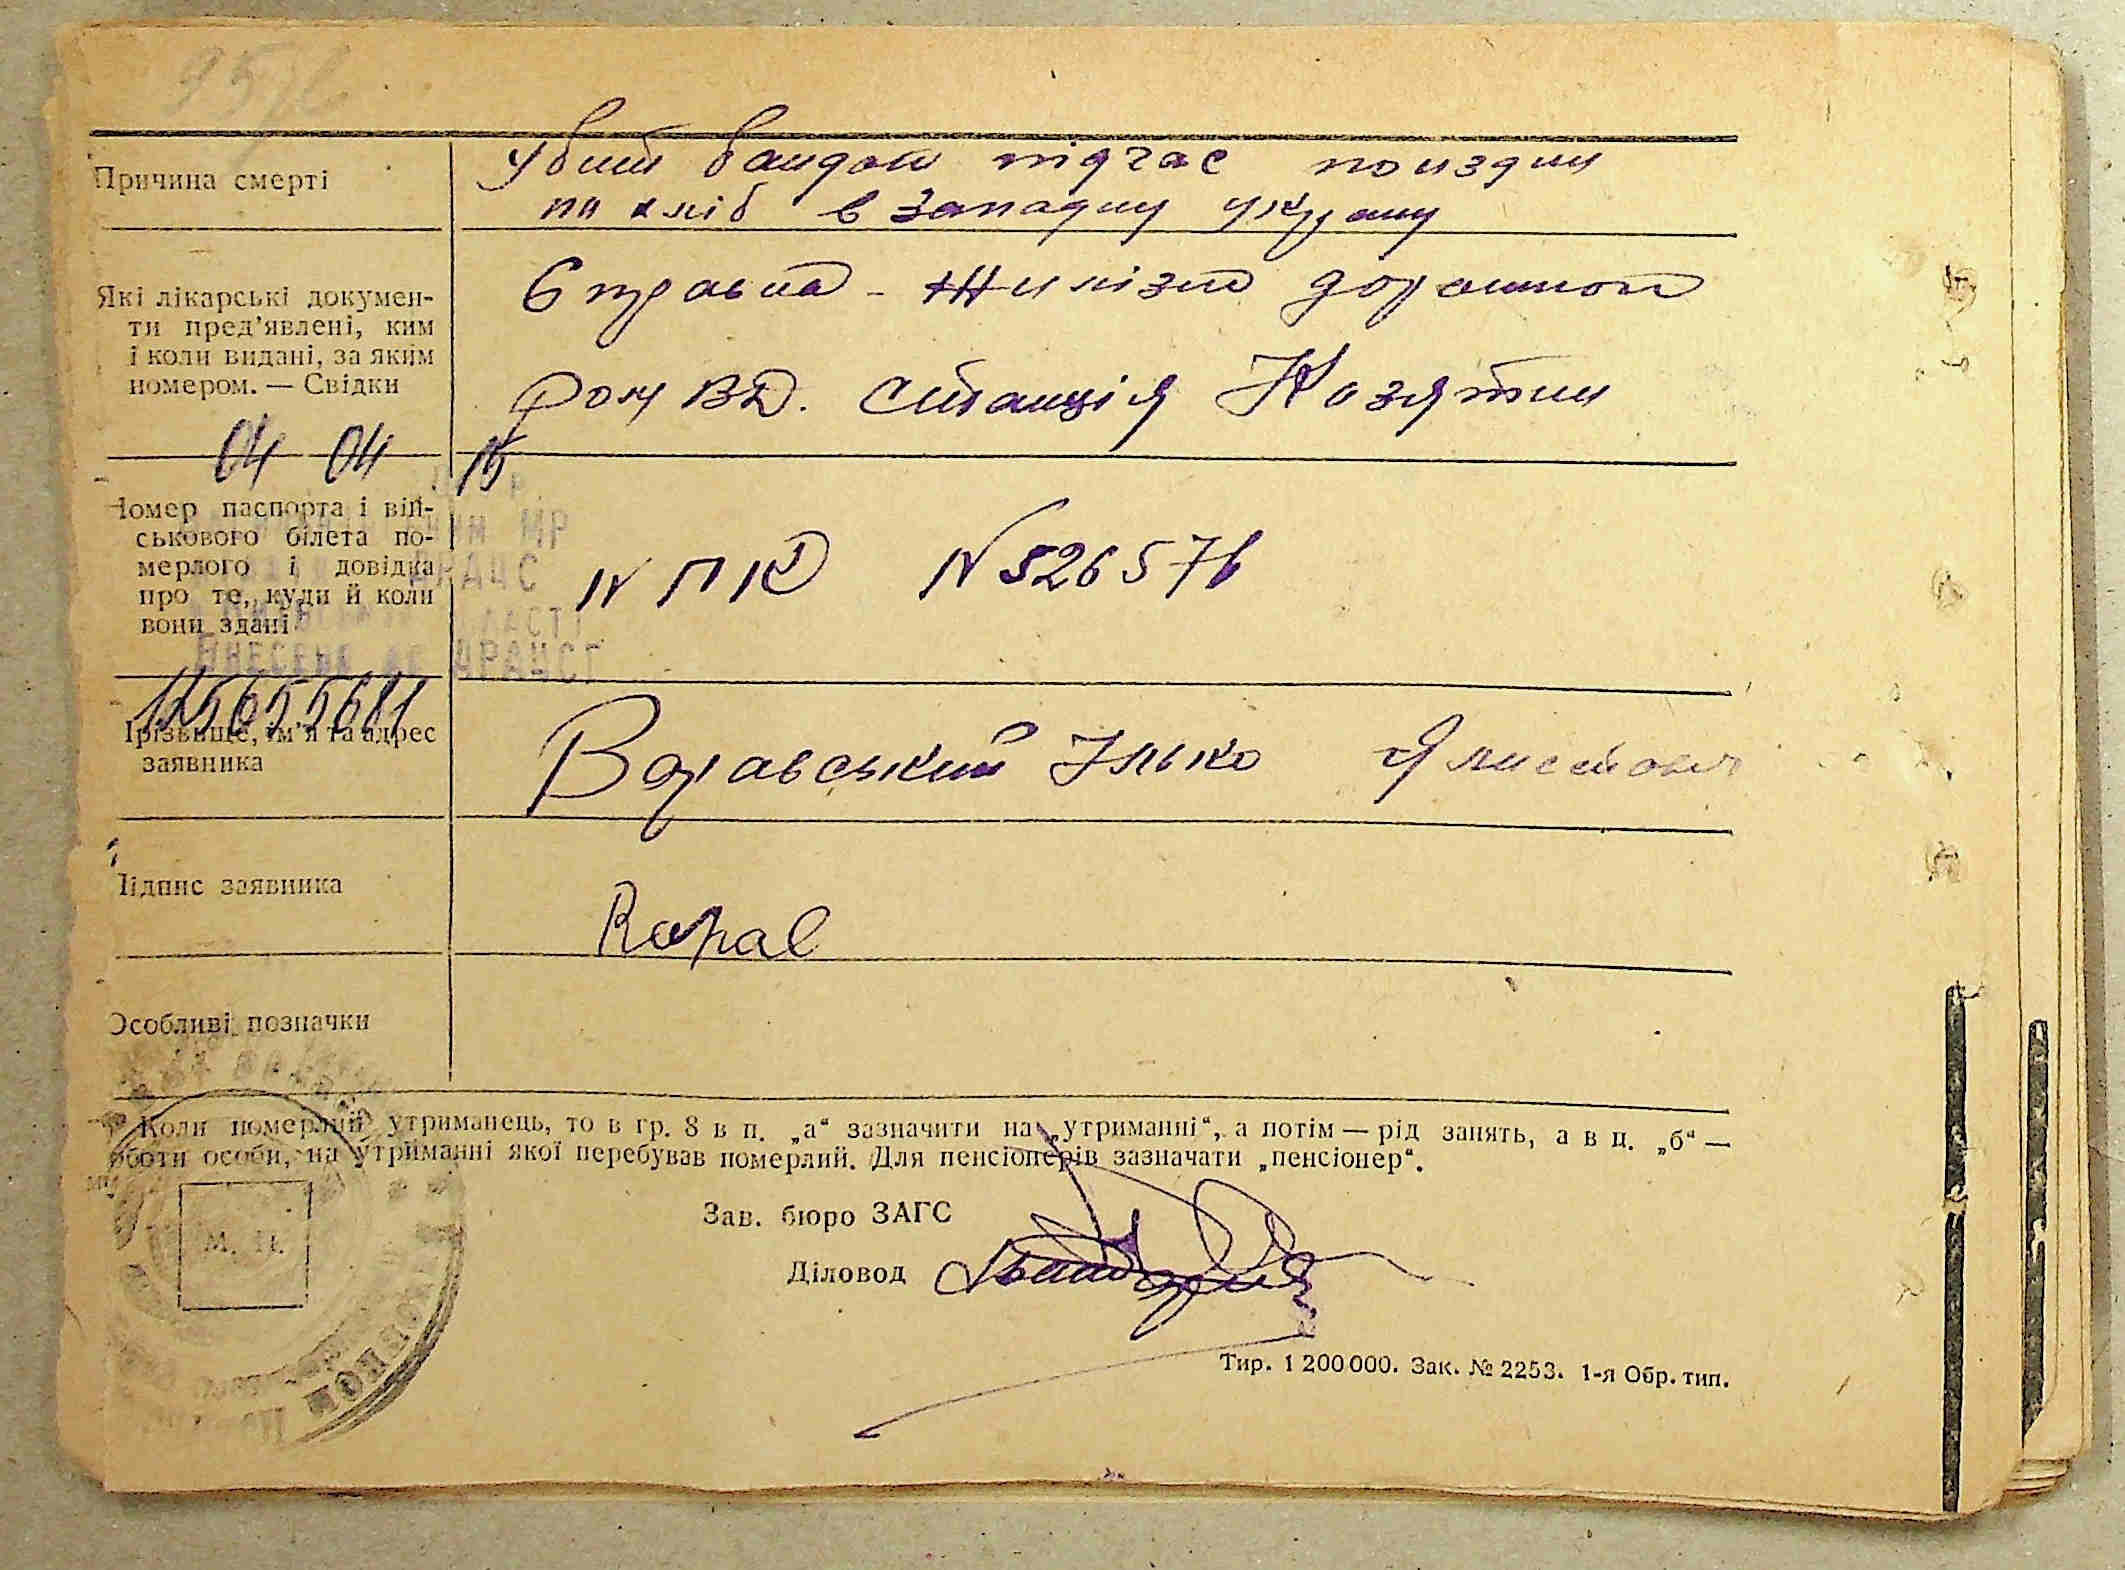 Причина смерті
Убит бандой підчас поиздки
на хліб в Западну Украину
Які лікарські докумен-
ти пред’явлені, ким
і коли видані, за яким
номером. — Свідки
Справка - Жилізно дорожной
ВД. Станція Козятин
04 04 15
Номер паспорта і вій-
ськового білета по-
мерлого і довідка
про те, куди й коли
вони здані
N 526576
МР
ДРАЦС
ВНЕСЕНО ДО ДРАЦСГ
Прізвище, ім’я та адрес
заявника
Варавський Ілько
Підпис заявника
Варав
Особливі позначки
Коли померлий утриманець, то в гр. 8 в п. „а“ зазначити на „утриманні“, а потім — рід занять, а в п. „б“ —
роботи особи, на утриманні якої перебував померлий. Для пенсіонерів зазначати „пенсіонер“.
Зав. бюро ЗАГС
М. П.
Діловод
Тир. 1 200 000. Зак. № 2253. 1-я Обр. тип.